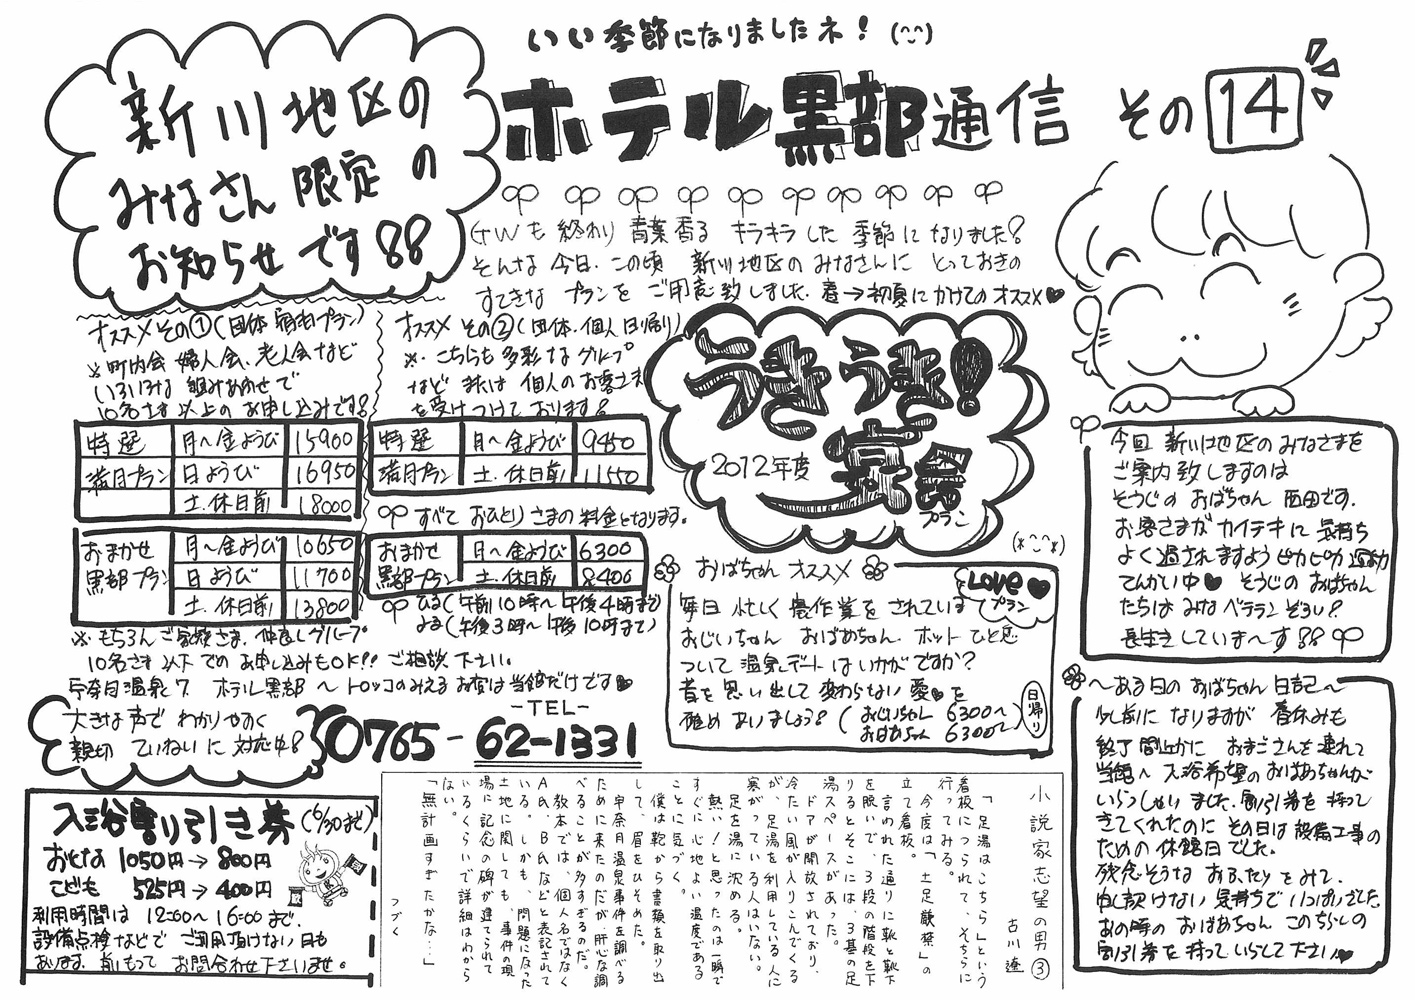 いい季節になりましたネ! (^-^)
ホテル黒部通信 その14
新川地区の
みなさん限定の
お知らせです!!
GWも終わり 青葉香る キラキラした 季節になりました!
そんな今日この頃 新川地区のみなさんに とっておきの
すてきな プランを ご用意致しました。春→初夏にかけてのオススメ♥
オススメ その①(団体宿泊プラン)
※町内会 婦人会、老人会など
いろいろな 組みあわせで
10名さま以上の お申し込みです!
特選 満月プラン
月~金ようび 15900
日ようび 16950
土・休日前 18000
おまかせ 黒部プラン
月~金ようび 10650
日ようび 11700
土・休日前 13800
※もちろん ご家族さま、仲良しグループ
10名さま以下での お申し込みもOK!! ご相談下さい。
オススメ その②(団体・個人日帰り)
※こちらも多彩なグループ
など または 個人のお客さま
を受けつけて おります!
特選 満月プラン
月~金ようび 9450
土・休日前 11550
すべて おひとりさまの料金となります。
おまかせ 黒部プラン
月~金ようび 6300
土・休日前 8400
ひる(午前10時~午後4時まで)
よる(午後3時~午後10時まで)
うきうき!
2012年度
宴会
プラン
(*^-^*)
宇奈月温泉で ホテル黒部~トロッコのみえるお宿は当館だけです♥
大きな声で わかりやすく
親切 ていねいに 対応中!
-TEL-
0765-62-1331
おばちゃん オススメ
Love♥
プラン
毎日 忙しく 農作業を されている
おじいちゃん おばあちゃん、ホット ひと息
ついて 温泉デートは いかがですか?
昔を 思い出して 変わらない 愛♥を
確めあいましょう!
(おじいちゃん 6300~
おばあちゃん 6300~)
日帰り
今回 新川地区のみなさまを
ご案内致しますのは
そうじの おばちゃん 西田です。
お客さまが カイテキに 気持ち
よく過されますよう ピカピカ 運動
てんかい中♥ そうじの おばちゃん
たちは みな ベテランぞろい!
長生きしていま~す!!
~ある日の おばちゃん 日記~
少し前に なりますが 春休みも
終了 間近かに おまごさんを 連れて
当館へ 入浴希望の おばあちゃんが
いらっしゃいました。割引券を 持って
きてくれたのに その日は 設備工事の
ための 休館日でした。
残念そうな お二人をみて、
申し訳けない 気持ちで いっぱいでした。
あの時の おばあちゃん このちらしの
割引券を 持って いらして下さい♥
入浴割り引き券 (6/30まで)
おとな 1050円→800円
こども 525円→400円
利用時間は 12:00~16:00まで。
設備点検などで ご利用頂けない日も
あります。前もって お問合わせ下さいませ。
小説家志望の男③
古川遼
「足湯はこちら」という
看板につられて、そちらに
行ってみる。
今度は「土足厳禁」の
立て看板。
言われた通りに靴と靴下
を脱いで、3段の階段を下
りるとそこには、3基の足
湯スペースがあった。
ドアが開放されており、
冷たい風が入りこんでくる
が、足湯を利用している人に
寒がっている人はいない。
足を湯に沈める。
熱い!と思ったのは一瞬で
すぐに心地よい温度である
ことに気づく。
僕は鞄から書類を取り出
して、眉をひそめた。
宇奈月温泉事件を調べる
ために来たのだが、肝心な調
べることが多すぎるのだ。
教本では、個人名ではなく
A氏、B氏などと表記されて
いる。しかも、問題になった
土地に関しても、事件の現
場に記念の碑が建てられて
いるくらいで詳細はわから
ない。
「無計画すぎたかな…」
つづく